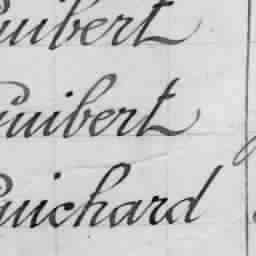 Guibert
Guibert
Guichard